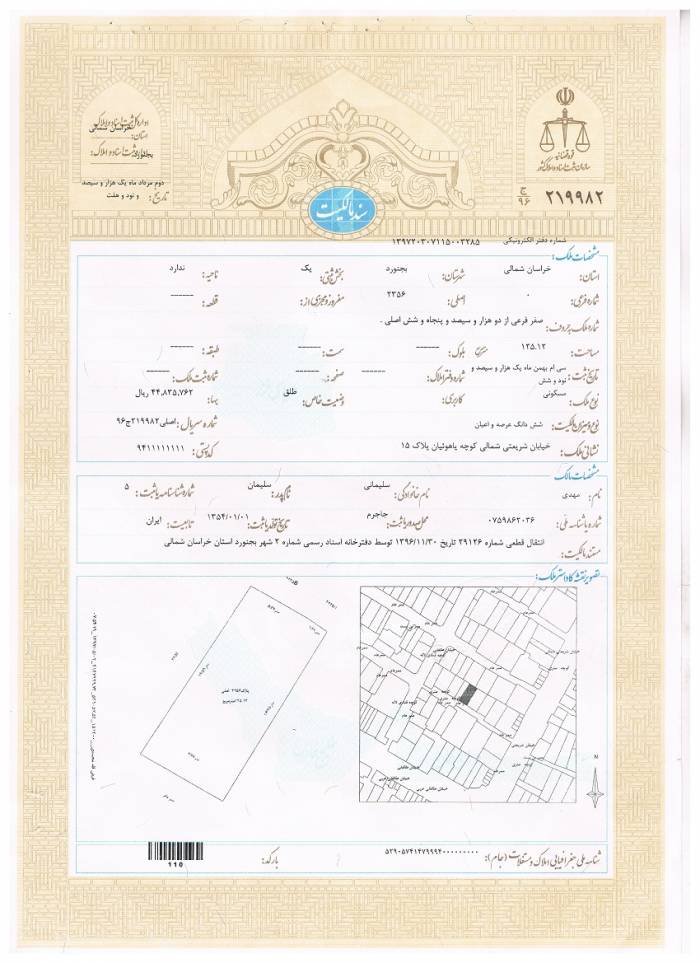 قوه قضائیه
سازمان ثبت اسناد و املاک کشور
ج
۹۶
۲۱۹۹۸۲
سند مالکیت
اداره کل ثبت اسناد و املاک
استان: خراسان شمالی
ثبت اسناد و املاک: بجنورد
تاریخ: دوم مرداد ماه یک هزار و سیصد
و نود و هفت
شماره دفتر الکترونیکی ۱۳۹۷۲۰۳۰۷۱۱۵۰۰۳۲۸۵
مشخصات ملک:
استان: خراسان شمالی شهرستان: بجنورد بخش ثبتی: یک ناحیه: ندارد
شماره فرعی: ۰ اصلی: ۲۳۵۶ مفروز و مجزی از: قطعه: ------
شماره ملک بحروف: صفر فرعی از دو هزار و سیصد و پنجاه و شش اصلی .
مساحت: ۱۲۵.۱۲ متر مربع بلوک: ------ سمت: ------ طبقه: ------
تاریخ ثبت: سی ام بهمن ماه یک هزار و سیصد و نود و شش شماره دفتر املاک: ------ صفحه: ------ شماره ثبت ملک: ------
نوع ملک: مسکونی کاربری: وضعیت خاص: طلق بهاء: ۴۴,۸۳۵,۷۶۲ ریال
نوع و میزان مالکیت: شش دانگ عرصه و اعیان شماره سریال: اصلی۲۱۹۹۸۲ج۹۶
نشانی ملک: خیابان شریعتی شمالی کوچه یاهوئیان پلاک ۱۵ کد پستی: ۹۴۱۱۱۱۱۱۱۱
مشخصات مالک:
نام: مهدی نام خانوادگی: سلیمانی نام پدر: سلیمان شماره شناسنامه یا ثبت: ۵
شماره یا شناسه ملی: ۰۷۵۹۸۶۲۰۳۶ محل صدور یا ثبت: جاجرم تاریخ تولد یا ثبت: ۱۳۵۴/۰۱/۰۱ تابعیت: ایران
مستند مالکیت: انتقال قطعی شماره ۲۹۱۲۶ تاریخ ۱۳۹۶/۱۱/۳۰ توسط دفترخانه اسناد رسمی شماره ۲ شهر بجنورد استان خراسان شمالی
تصویر نقشه کاداستر ملک:
پلاک ۲۳۵۶ اصلی
معبر عام
خیابان شریعتی شمالی
خیابان طالقانی
کوچه شادی لاله
خیابان شریعتی
خیابان طالقانی غربی
N
شناسه ملی جغرافیایی املاک و مستغلات (جام): ۵۳۹۰۵۷۴۱۴۷۹۹۹۴۰۰۰۰۰۰۰۰۰
بارکد:
110